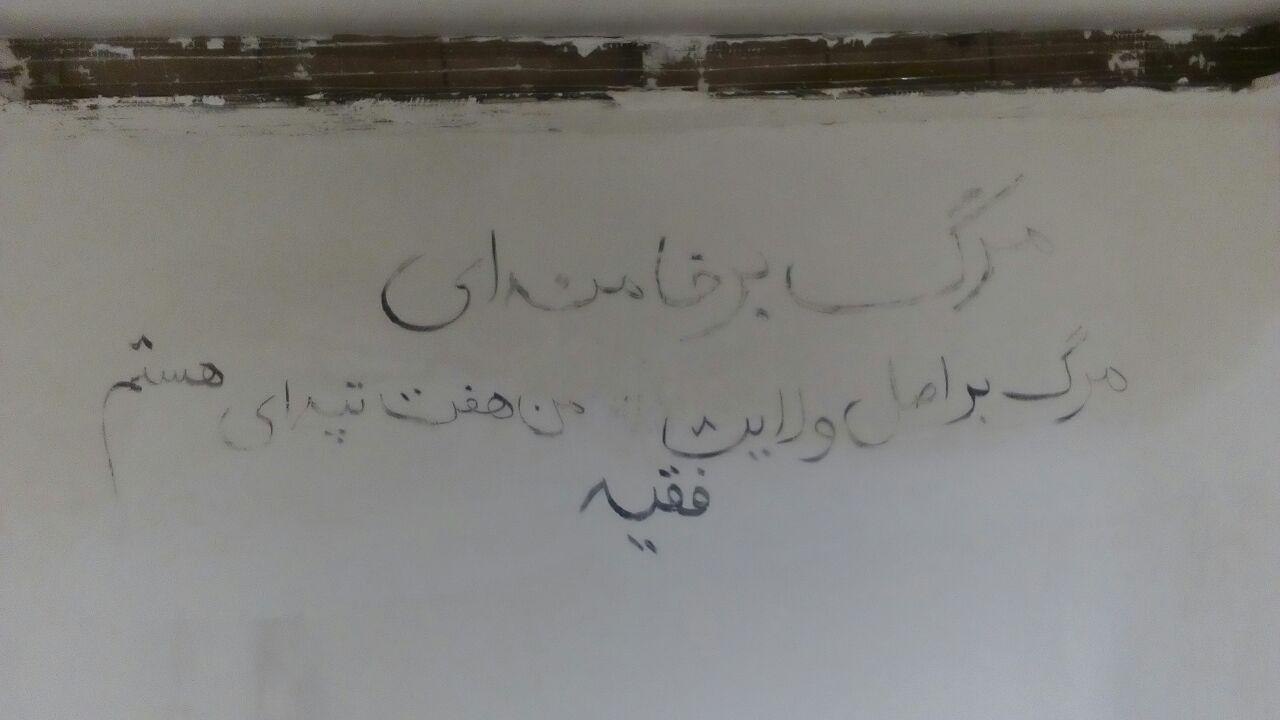 مرگ بر خامنه ای
مرگ بر اصل ولایت
فقیه
من هفت تپه ای هستم